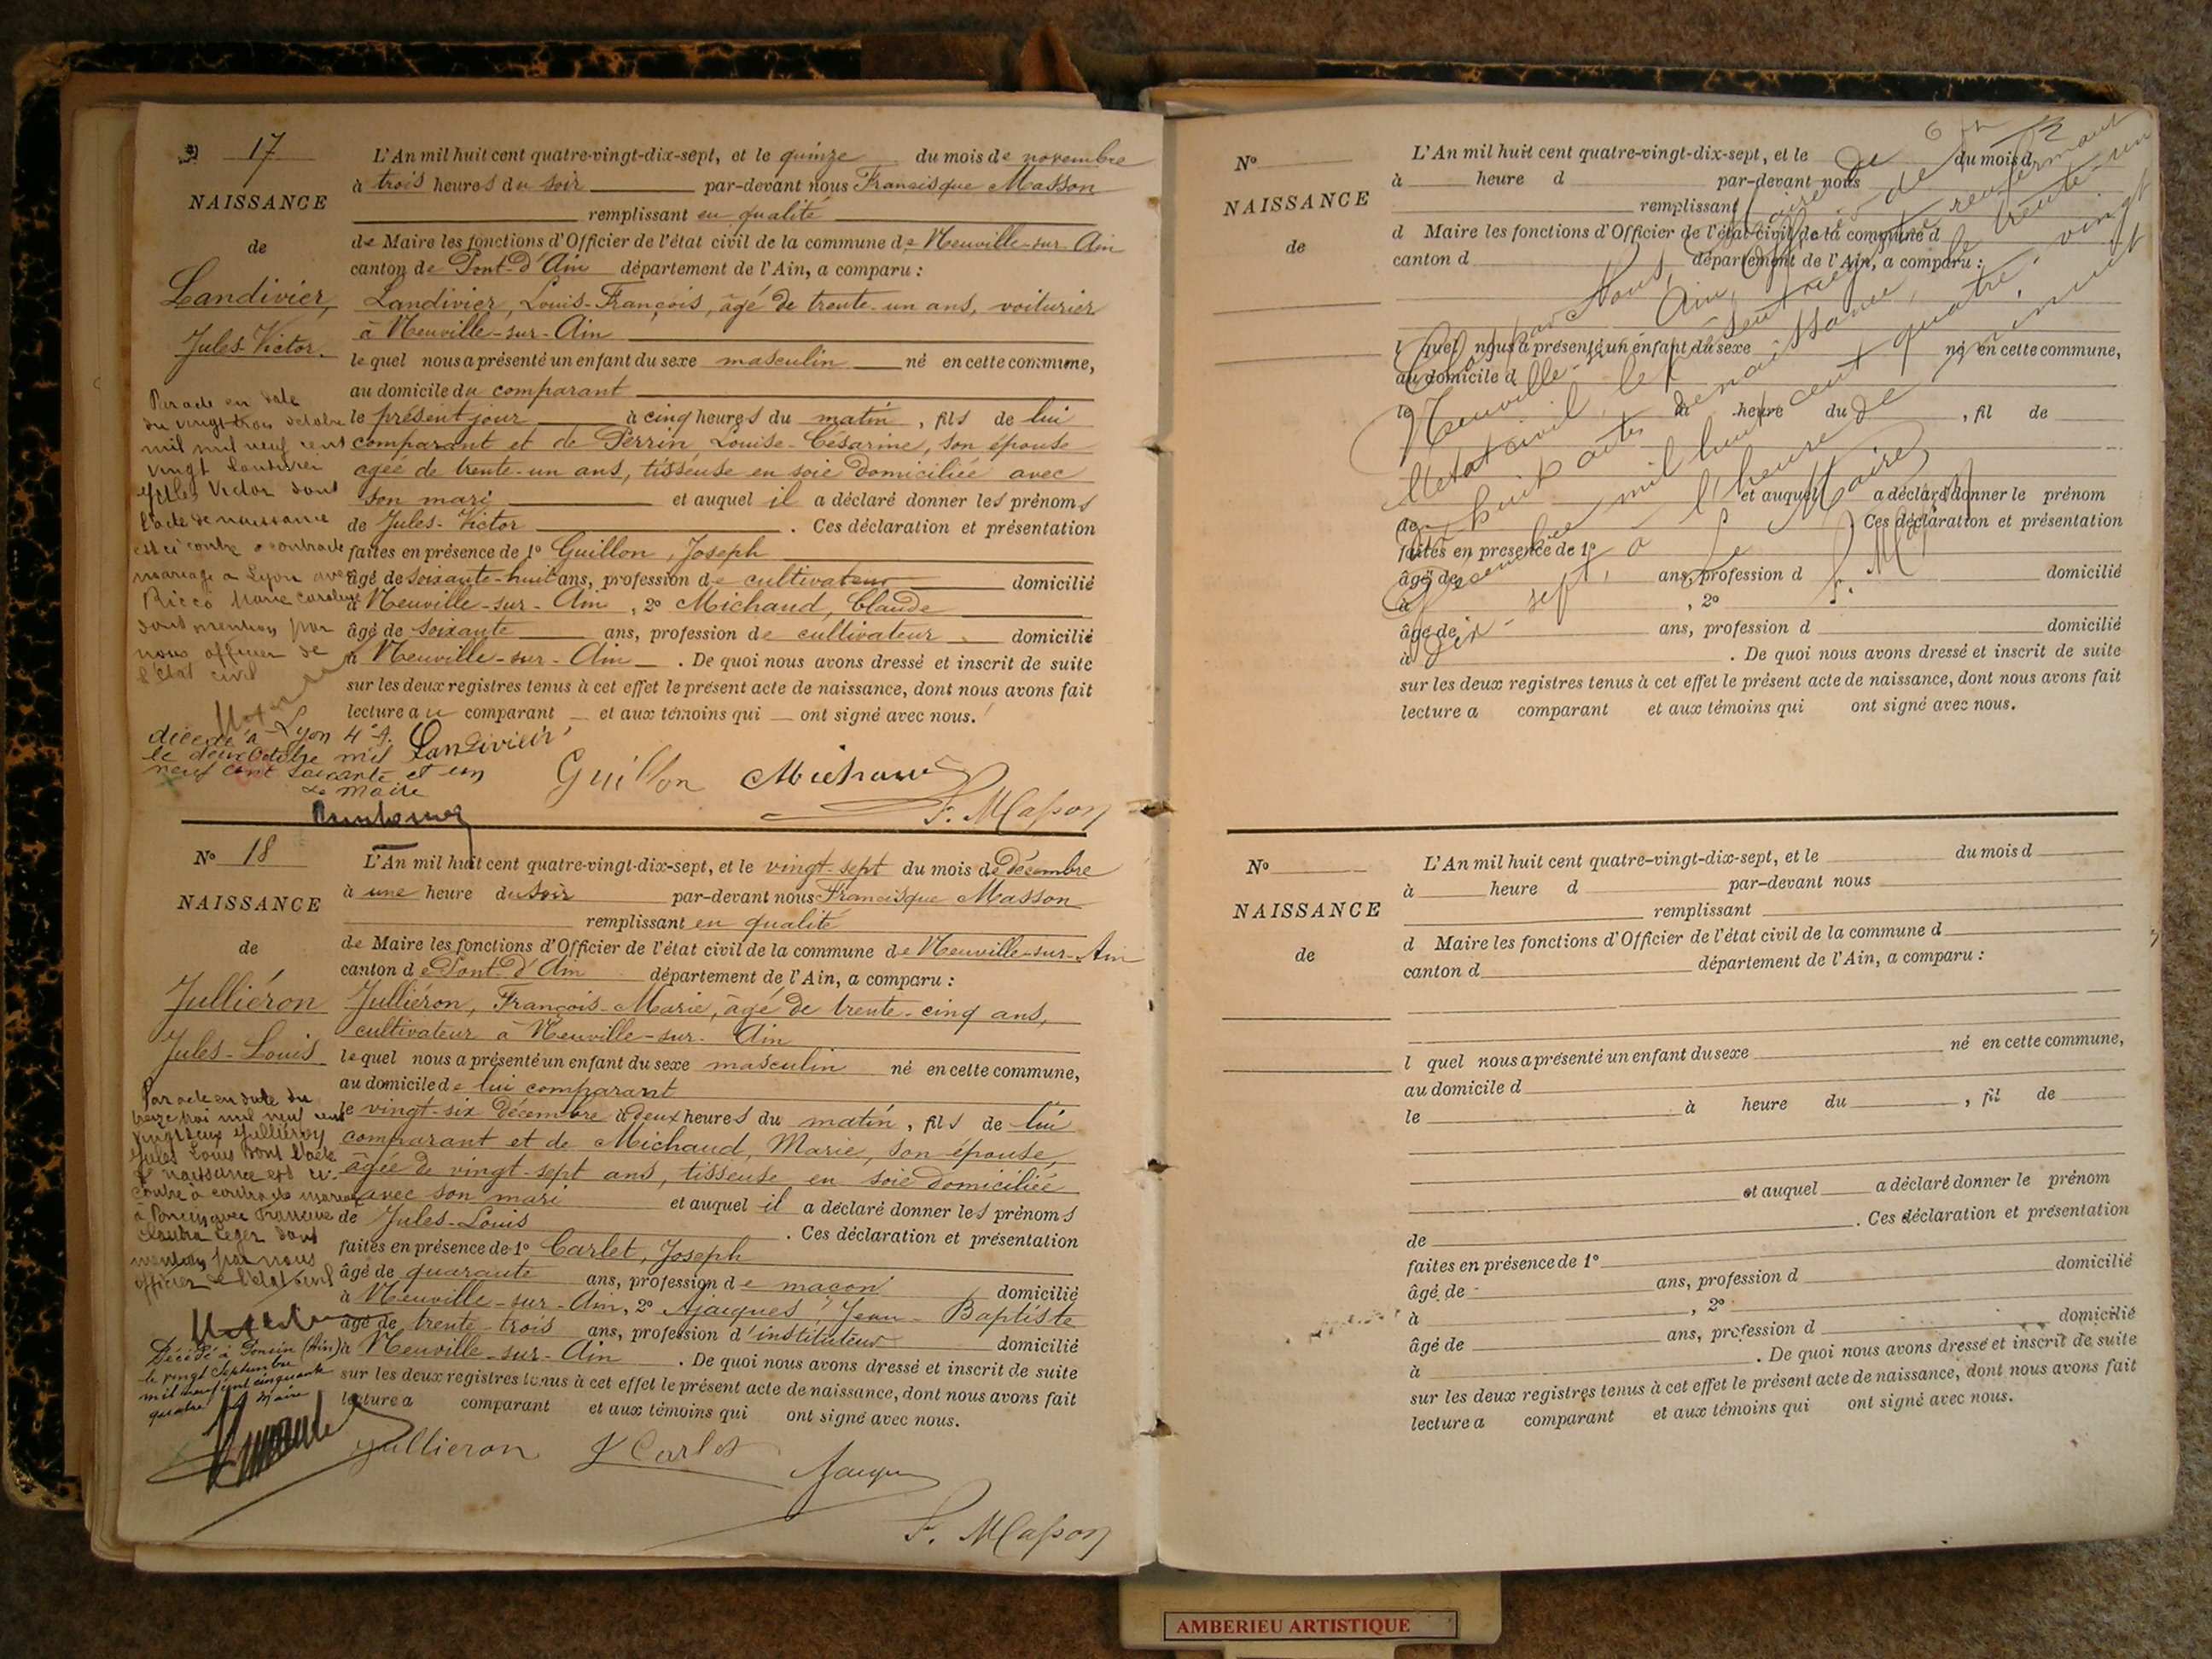 17
NAISSANCE
de
Landivier,
Jules-Victor.
L'An mil huit cent quatre-vingt-dix-sept, et le quinze du mois de novembre
à trois heures du soir par-devant nous Francisque Masson
remplissant en qualité
de Maire les fonctions d'Officier de l'état civil de la commune de Neuville-sur-Ain
canton de Pont-d'Ain département de l'Ain, a comparu :
Landivier, Louis-François, âgé de trente-un ans, voiturier
à Neuville-sur-Ain
lequel nous a présenté un enfant du sexe masculin né en cette commune,
au domicile du comparant
le présent jour à cinq heures du matin, fils de lui
comparant et de Perrin, Louise-Césarine, son épouse
agée de trente-un ans, tisseuse en soie domiciliée avec
son mari et auquel il a déclaré donner les prénoms
de Jules-Victor . Ces déclaration et présentation
faites en présence de 1° Guillon, Joseph
âgé de soixante-huit ans, profession de cultivateur domicilié
à Neuville-sur-Ain, 2° Michaud, Claude
âgé de soixante ans, profession de cultivateur domicilié
à Neuville-sur-Ain . De quoi nous avons dressé et inscrit de suite
sur les deux registres tenus à cet effet le présent acte de naissance, dont nous avons fait
lecture au comparant et aux témoins qui ont signé avec nous.
Par acte en date
du vingt-trois octobre
mil mil neuf cent
vingt Landivier
Jules Victor dont
l'acte de naissance
est ci contre a contracté
mariage a Lyon avec
Ricco Marie Caroline
dont mention par
nous officier de
l'état civil
décédé à Lyon 4e A.
le deux Octobre mil
neuf cent soixante et un
Le Maire
Landivier
Guillon Michaud
F. Masson
N° 18
NAISSANCE
de
Julliéron
Jules-Louis
L'An mil huit cent quatre-vingt-dix-sept, et le vingt-sept du mois de Décembre
à une heure du soir par-devant nous Francisque Masson
remplissant en qualité
de Maire les fonctions d'Officier de l'état civil de la commune de Neuville-sur-Ain
canton de Pont-d'Ain département de l'Ain, a comparu :
Julliéron, François-Marie, âgé de trente-cinq ans,
cultivateur à Neuville-sur-Ain
lequel nous a présenté un enfant du sexe masculin né en cette commune,
au domicile de lui comparant
le vingt-six Décembre à deux heures du matin, fils de lui
comparant et de Michaud, Marie, son épouse,
âgée de vingt-sept ans, tisseuse en soie domiciliée
avec son mari et auquel il a déclaré donner les prénoms
de Jules-Louis . Ces déclaration et présentation
faites en présence de 1° Carlet, Joseph
âgé de quarante ans, profession de maçon domicilié
à Neuville-sur-Ain, 2° Ajacques, Jean-Baptiste
âgé de trente-trois ans, profession d'instituteur domicilié
à Neuville-sur-Ain . De quoi nous avons dressé et inscrit de suite
sur les deux registres tenus à cet effet le présent acte de naissance, dont nous avons fait
lecture a comparant et aux témoins qui ont signé avec nous.
Par acte en date du
treize mai mil neuf cent
vingt deux Julliéron
Jules Louis dont l'acte
de naissance est ci-
contre a contracté mariage
à Poncin avec Francine
Léger dont
mention par nous
officier de l'état civil
Décédé à Poncin (Ain)
le vingt Septembre
mil neuf cent cinquante
quatre Le Maire
Jullieron J Carlet
F. Masson
N°
NAISSANCE
de
L'An mil huit cent quatre-vingt-dix-sept, et le du mois d
à heure d par-devant nous
remplissant
d Maire les fonctions d'Officier de l'état civil de la commune d
canton d département de l'Ain, a comparu :
l quel nous a présenté un enfant du sexe né en cette commune,
au domicile d
le à heure du , fil de
et auquel a déclaré donner le prénom
de . Ces déclaration et présentation
faites en présence de 1°
âgé de ans, profession d domicilié
à , 2°
âgé de ans, profession d domicilié
à . De quoi nous avons dressé et inscrit de suite
sur les deux registres tenus à cet effet le présent acte de naissance, dont nous avons fait
lecture a comparant et aux témoins qui ont signé avec nous.
Clos par Nous, Maire de
Neuville-sur-Ain, Officier de
l'état civil, le présent registre renfermant
dix huit actes de naissance, le trente-un
Décembre mil huit cent quatre-vingt
dix-sept, à l'heure de minuit
Le Maire,
F. Masson
N°
NAISSANCE
de
L'An mil huit cent quatre-vingt-dix-sept, et le du mois d
à heure d par-devant nous
remplissant
d Maire les fonctions d'Officier de l'état civil de la commune d
canton d département de l'Ain, a comparu :
l quel nous a présenté un enfant du sexe né en cette commune,
au domicile d
le à heure du , fil de
et auquel a déclaré donner le prénom
de . Ces déclaration et présentation
faites en présence de 1°
âgé de ans, profession d domicilié
à , 2°
âgé de ans, profession d domicilié
à . De quoi nous avons dressé et inscrit de suite
sur les deux registres tenus à cet effet le présent acte de naissance, dont nous avons fait
lecture a comparant et aux témoins qui ont signé avec nous.
AMBERIEU ARTISTIQUE